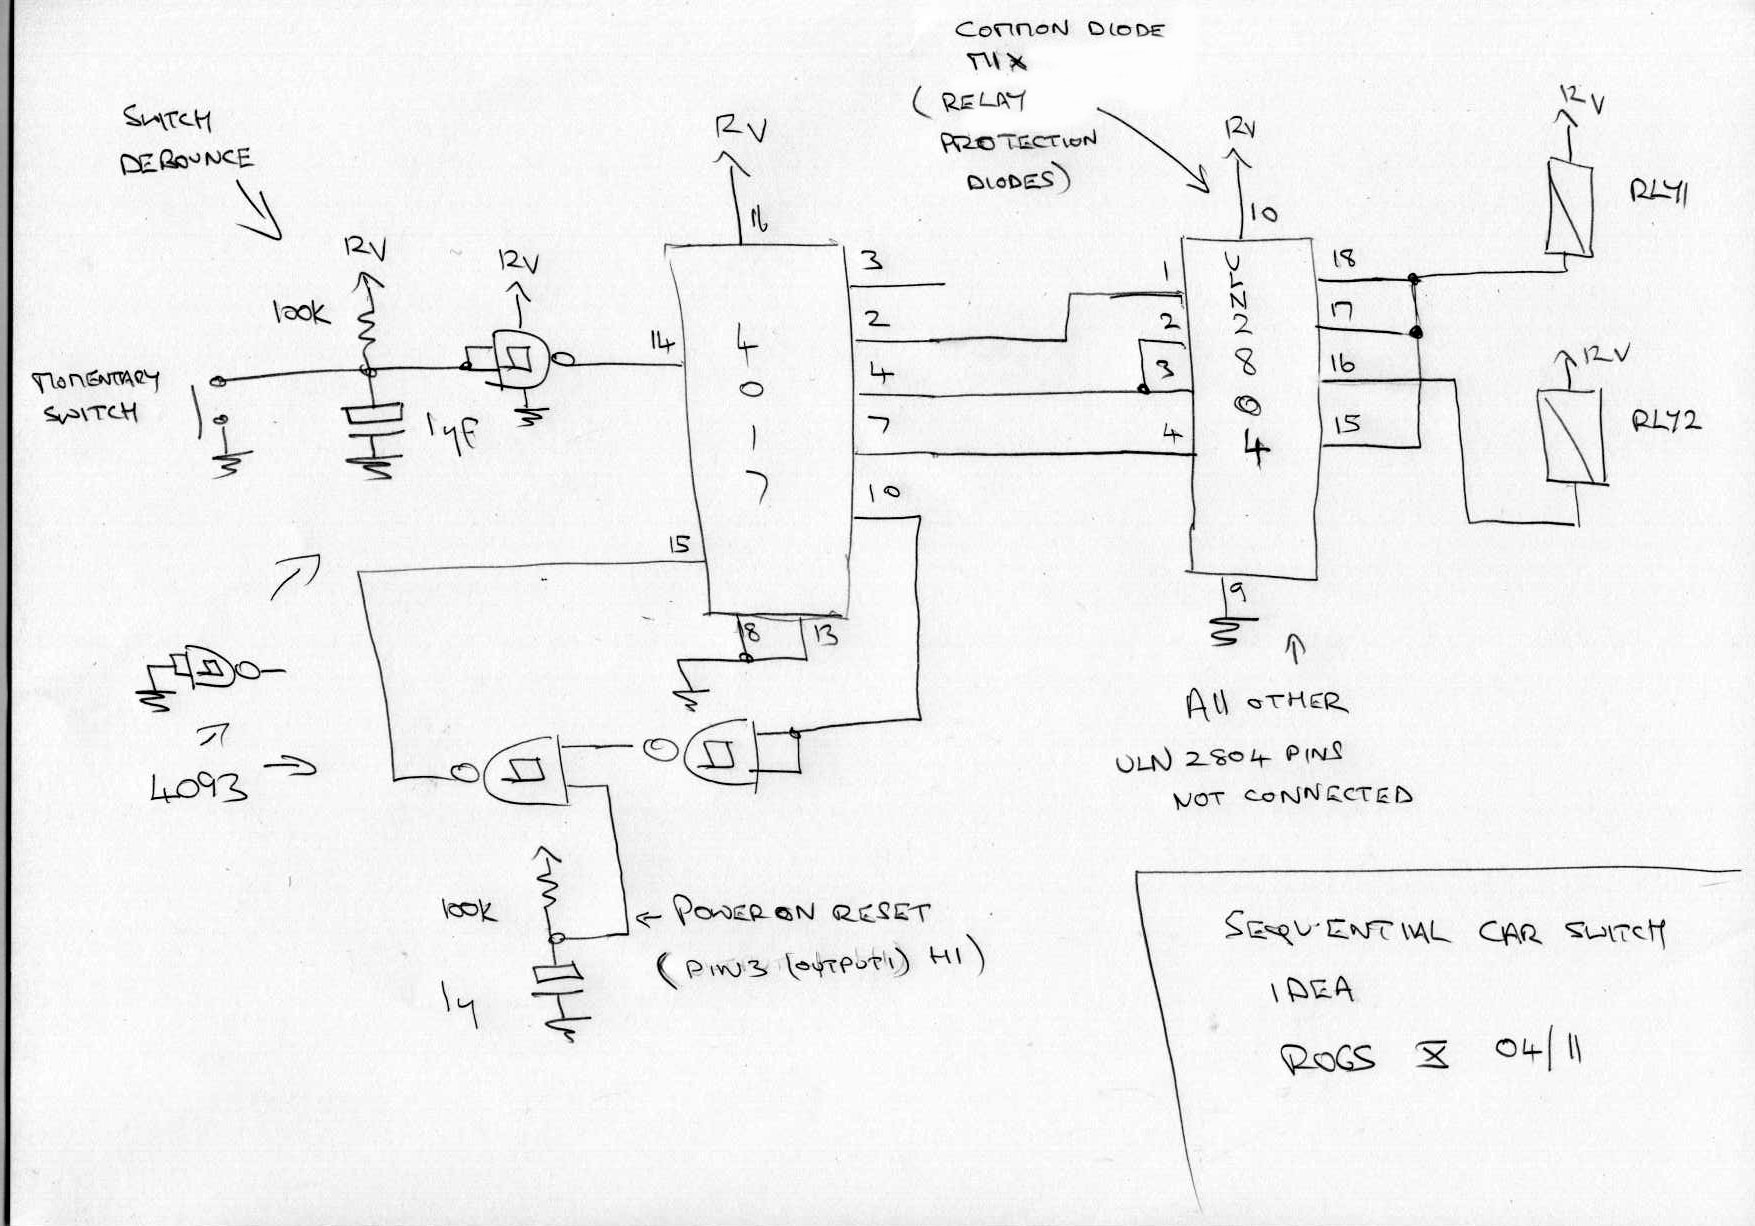 COMMON DIODE
MIX
(RELAY
PROTECTION
DIODES)
SWITCH
DEBOUNCE
12V
100K
12V
MOMENTARY
SWITCH
1µF
12V
16
14
4
0
1
7
3
2
4
7
10
15
8
13
12V
10
1
2
3
4
ULN2804
18
17
16
15
9
12V
RLY1
12V
RLY2
4093
All OTHER
ULN 2804 PINS
NOT CONNECTED
100K
1µ
← POWER ON RESET
(PIN3 (OUTPUT1) HI)
SEQUENTIAL CAR SWITCH
IDEA
ROGS X 04/11